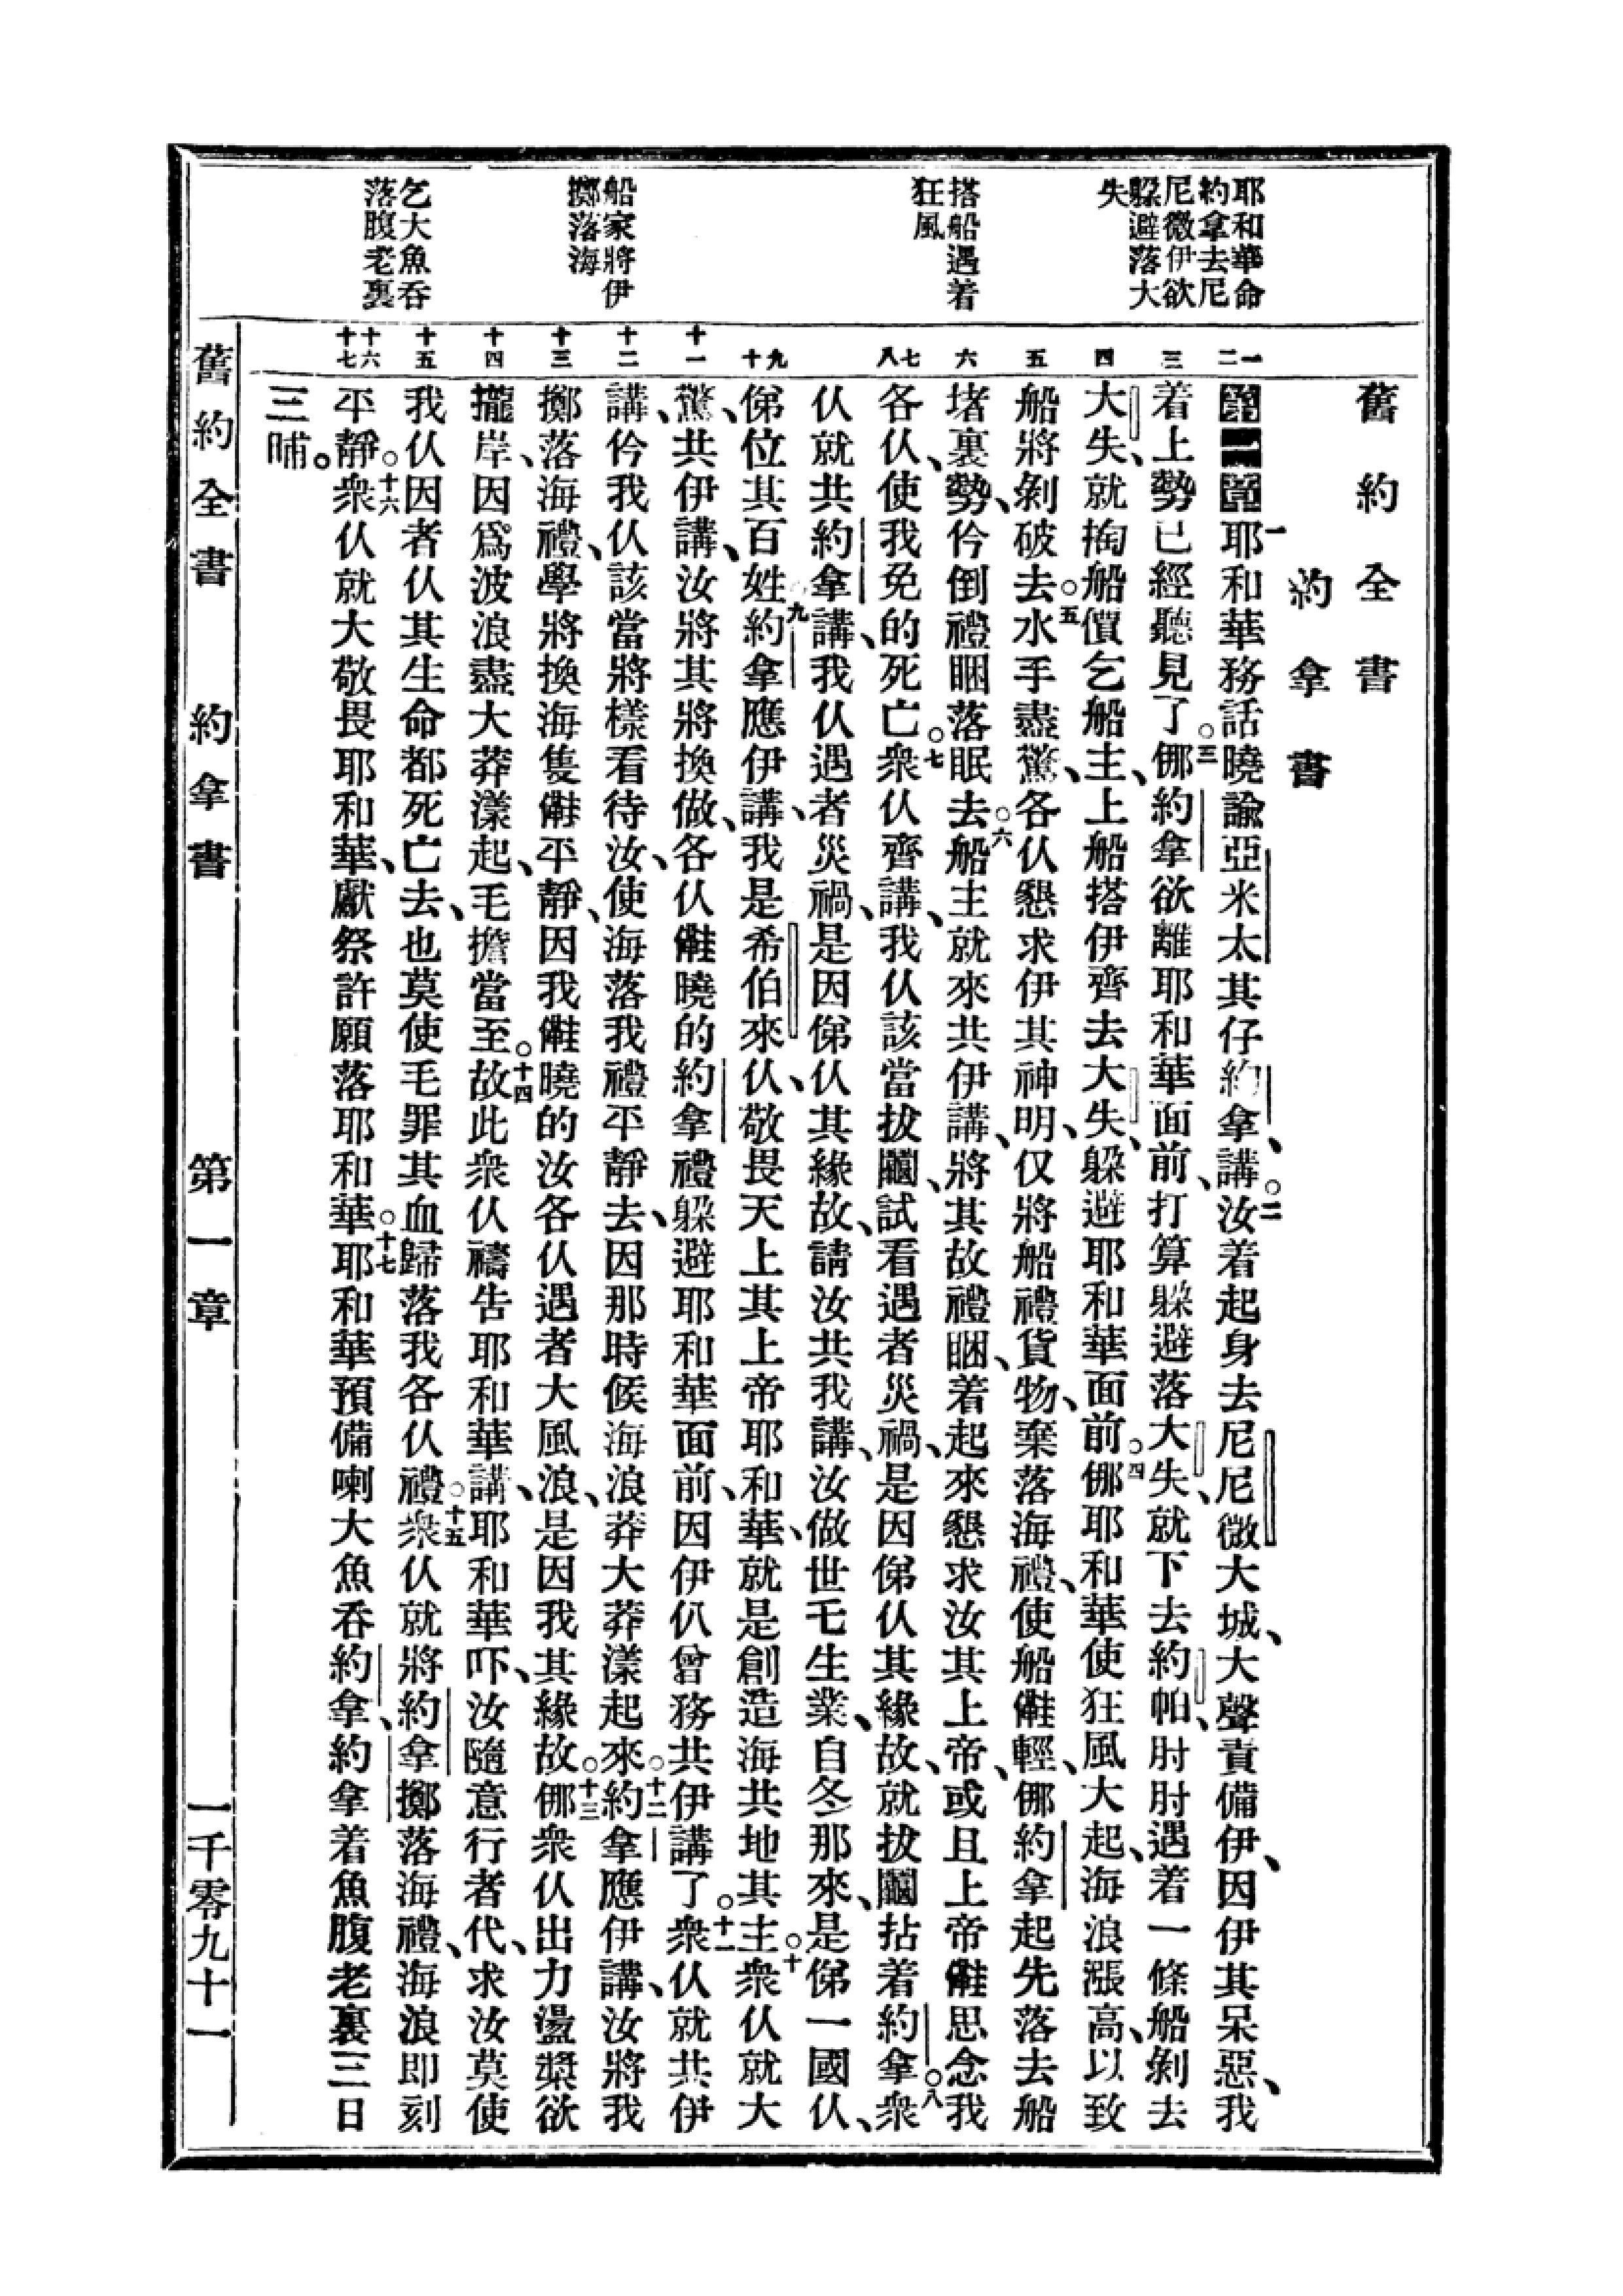 耶和華命
約拿去尼
尼微伊欲
躲避落大
失
搭船遇着
狂風
船家將伊
擲落海
乞大魚吞
落腹老裏
一 二 三 四 五 六 七 八 九 十 十一 十二 十三 十四 十五 十六 十七
舊約全書
約拿書
第一章 一耶和華務話曉諭亞米太其仔約拿、講、○二汝着起身去尼尼微大城、大聲責備伊、因伊其呆惡、我
着上勢已經聽見了○三㑚約拿欲離耶和華面前、打算躲避落大失、就下去約帕、肘肘遇着一條船剝去
大失、就掏船價乞船主、上船搭伊齊去大失、躲避耶和華面前○四㑚耶和華使狂風大起、海浪漲高、以致
船將剝破去○五水手盡驚、各仈懇求伊其神明、仅將船禮貨物、棄落海禮、使船⿰亻鞋輕、㑚約拿起先落去船
堵裏勢、仱倒禮睏落眠去○六船主就來共伊講、將其故禮睏、着起來懇求汝其上帝、或且上帝⿰亻鞋思念我
各仈、使我免的死亡○七衆仈齊講、我仈該當拔鬮、試看遇者災禍、是因俤仈其緣故、就拔鬮拈着約拿○八衆
仈就共約拿講、我仈遇者災禍、是因俤仈其緣故、請汝共我講、汝做世乇生業、自冬那來、是俤一國仈、
俤位其百姓○九約拿應伊講、我是希伯來仈、敬畏天上其上帝耶和華、就是創造海共地其主○十衆仈就大
驚、共伊講、汝將其將換做、各仈⿰亻鞋曉的約拿禮躲避耶和華面前、因伊仈曾務共伊講了○十一衆仈就共伊
講、仱我仈該當將樣看待汝、使海落我禮平靜去、因那時候海浪莽大莽漾起來○十二約拿應伊講、汝將我
擲落海禮、學將換海隻⿰亻鞋平靜、因我⿰亻鞋曉的汝各仈遇者大風浪、是因我其緣故○十三㑚衆仈出力盪槳欲
攏岸、因爲波浪盡大莽漾起、毛擔當至○十四故此衆仈禱告耶和華講、耶和華吓、汝隨意行者代、求汝莫使
我仈因者仈其生命都死亡去、也莫使毛罪其血歸落我各仈禮○十五衆仈就將約拿擲落海禮、海浪即刻
平靜○十六衆仈就大敬畏耶和華、獻祭許願落耶和華○十七耶和華預備喇大魚吞約拿、約拿着魚腹老裏三日
三晡。
舊約全書 約拿書 第一章 一千零九十一